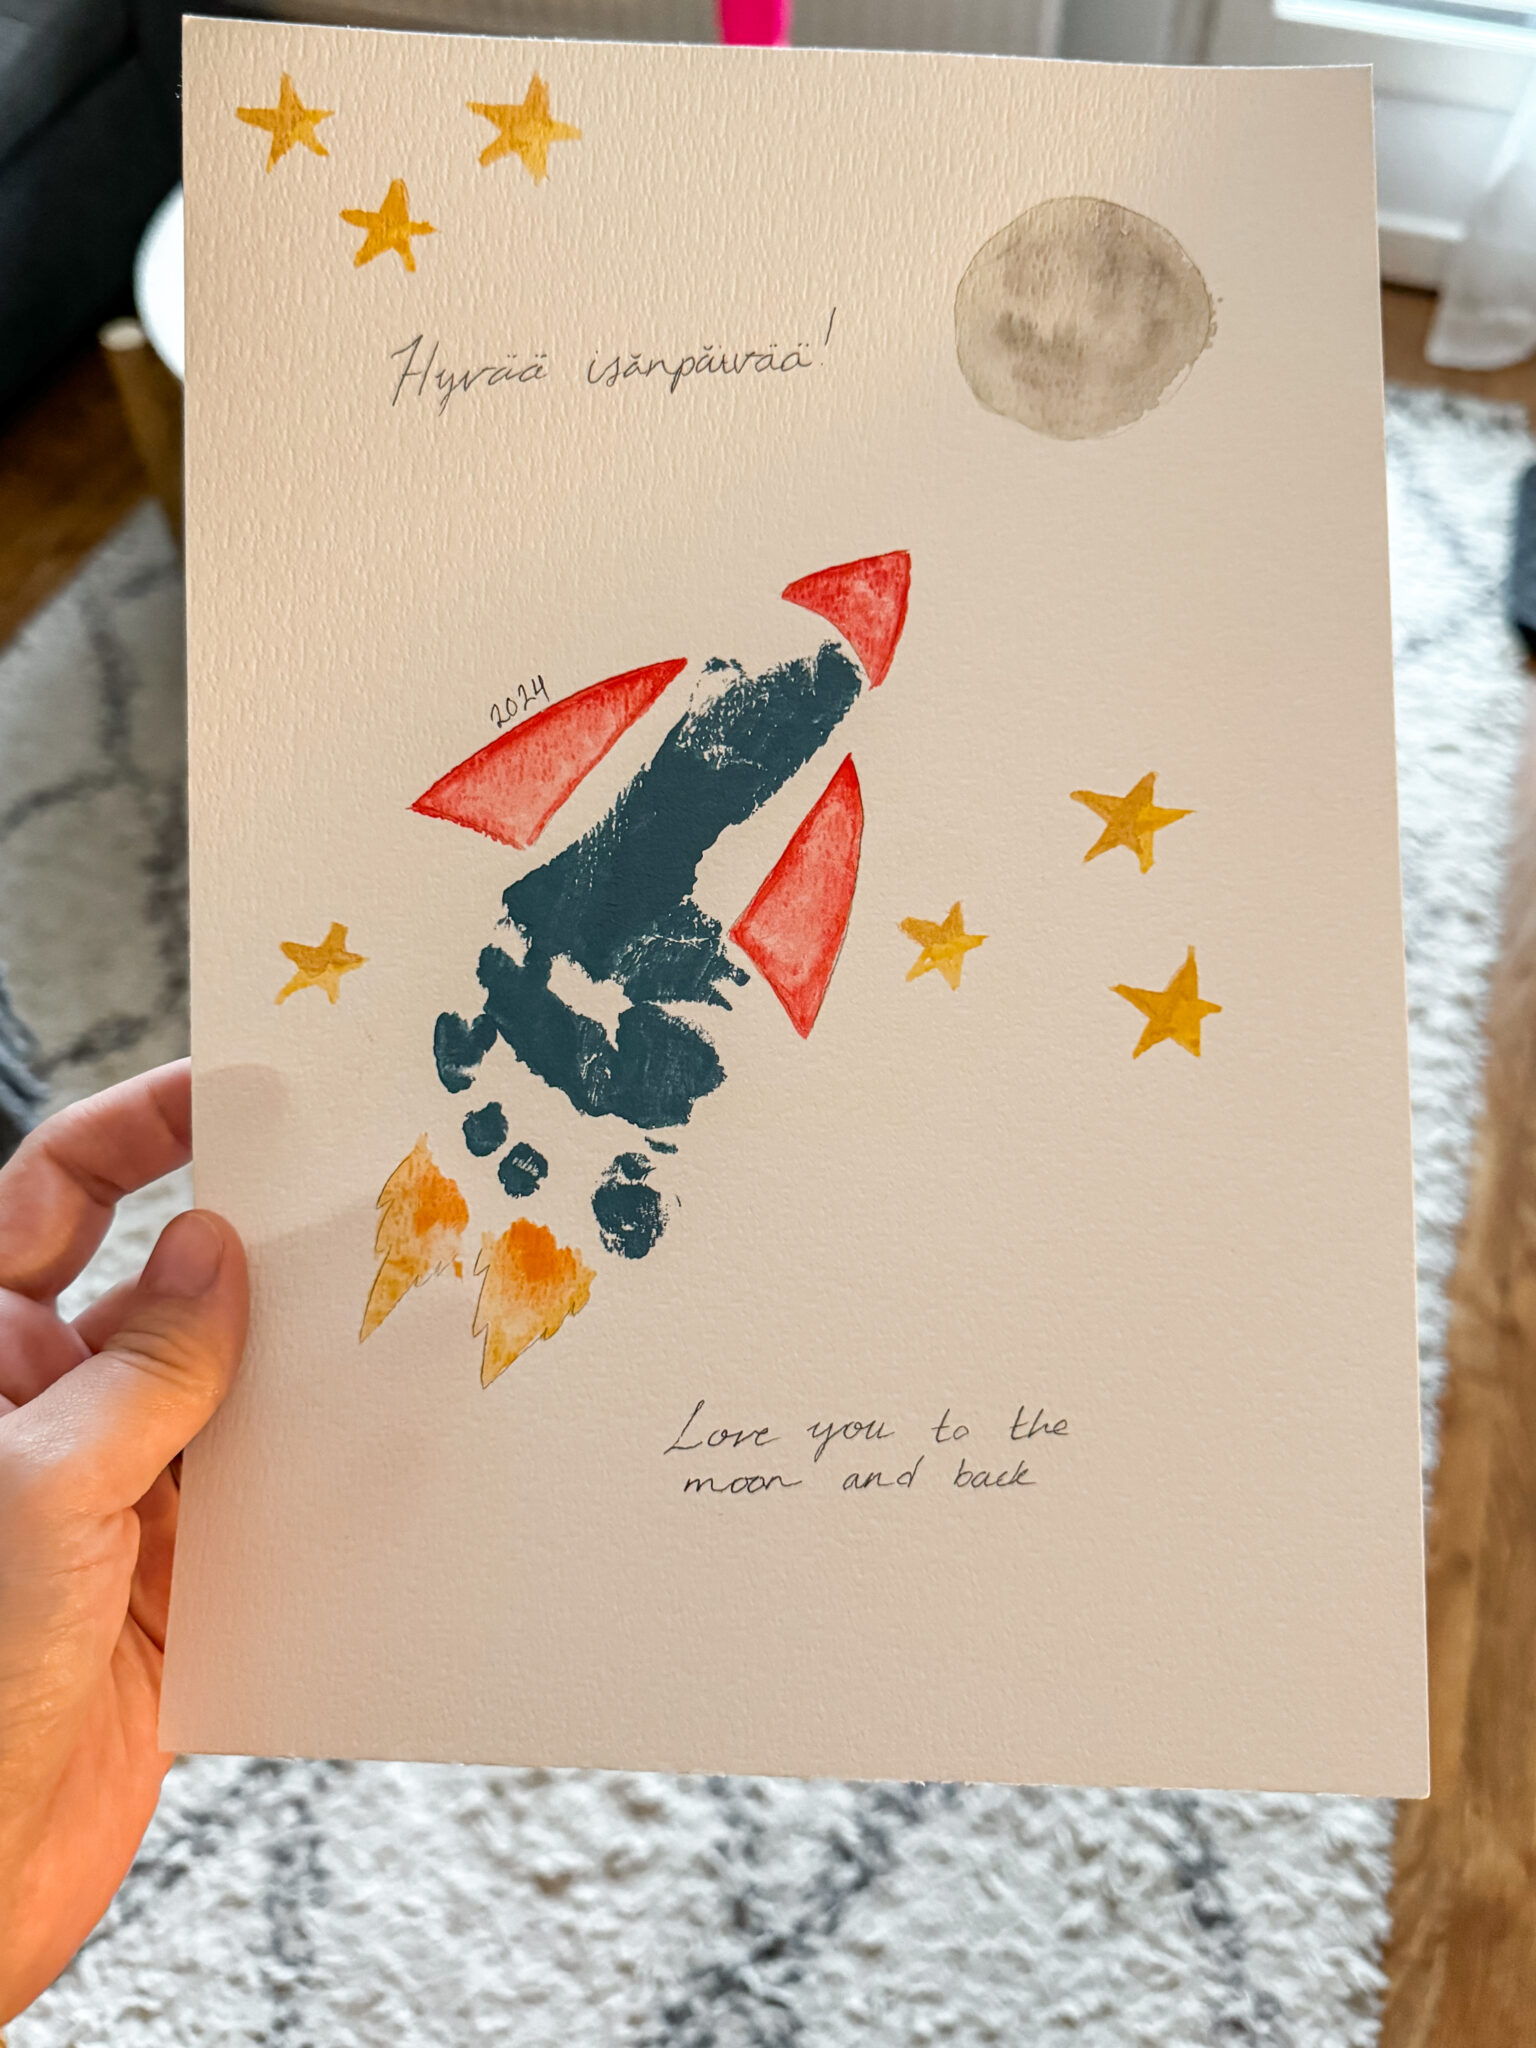 Hyvää isänpäivää!
2024
Love you to the
moon and back